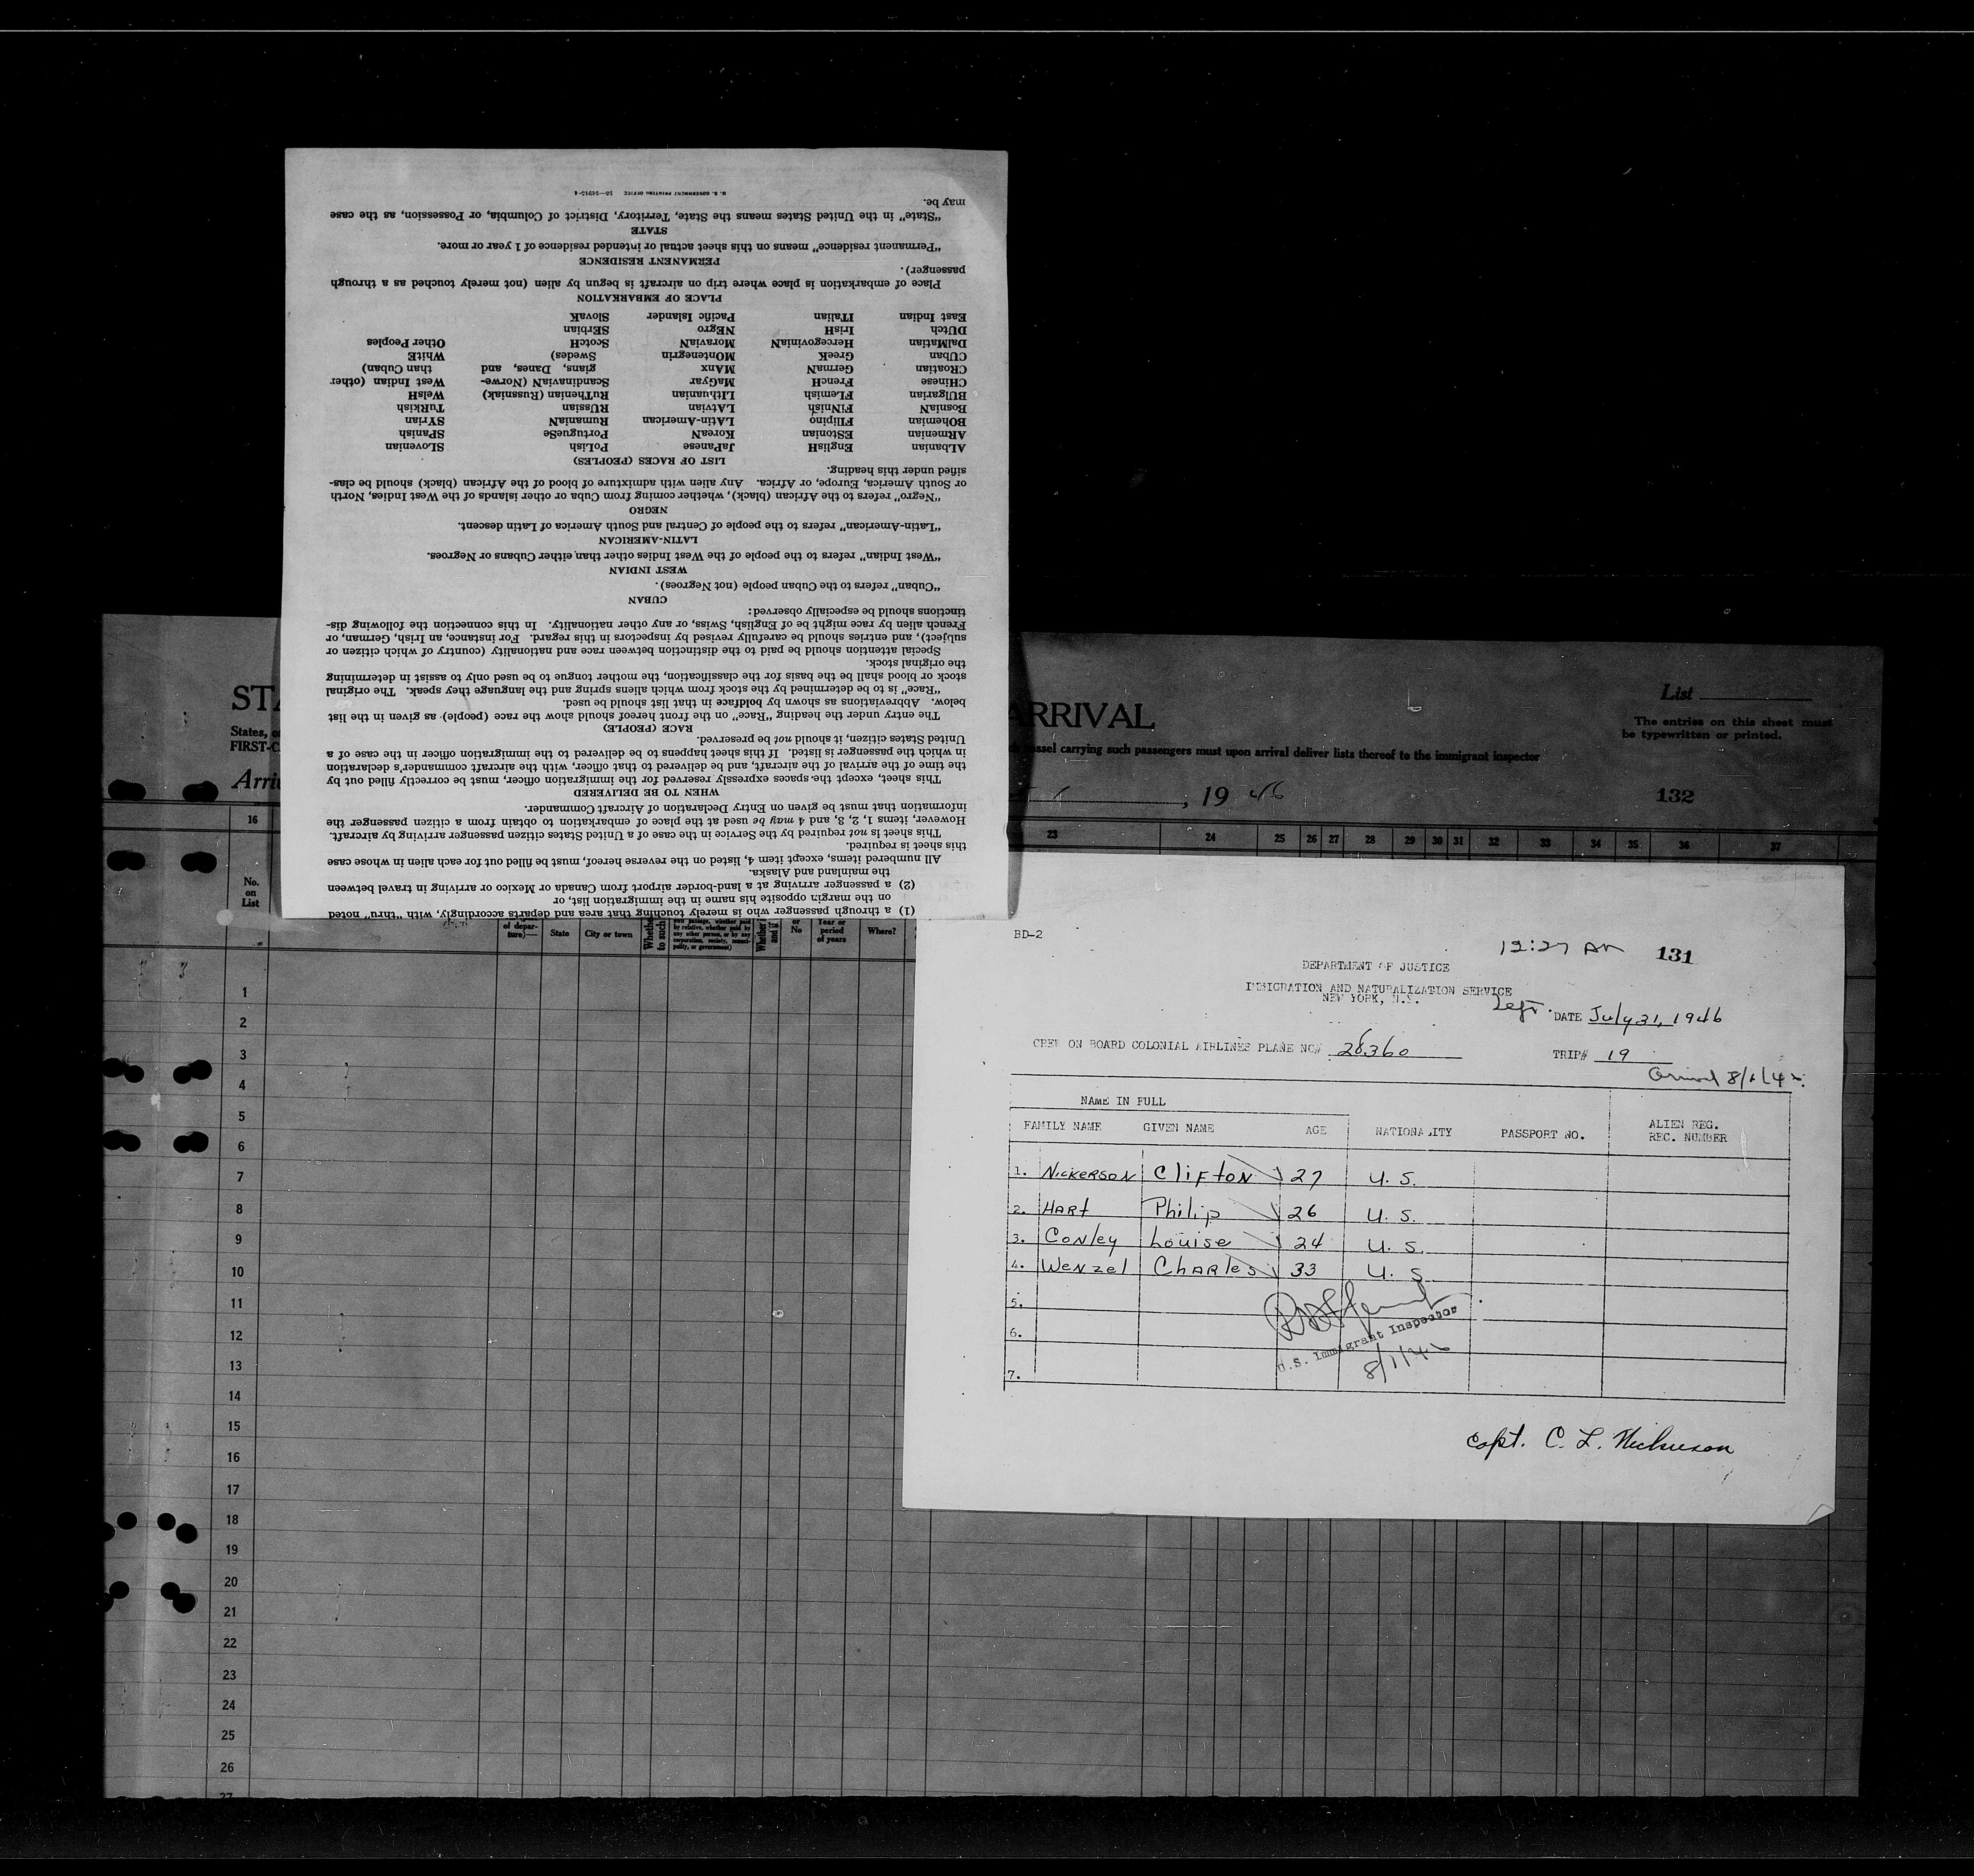 (1) a through passenger who is merely touching that area and departs accordingly, with "thru" noted
on the margin opposite his name in the immigration list, or
(2) a passenger arriving at a land-border airport from Canada or Mexico or arriving in travel between
the mainland and Alaska.
All numbered items, except item 4, listed on the reverse hereof, must be filled out for each alien in whose case
this sheet is required.
This sheet is not required by the Service in the case of a United States citizen passenger arriving by aircraft.
However, items 1, 2, 3, and 4 may be used at the place of embarkation to obtain from a citizen passenger the
information that must be given on Entry Declaration of Aircraft Commander.
WHEN TO BE DELIVERED
This sheet, except the spaces expressly reserved for the immigration officer, must be correctly filled out by
the time of the arrival of the aircraft, and be delivered to that officer, with the aircraft commander's declaration
in which the passenger is listed. If this sheet happens to be delivered to the immigration officer in the case of a
United States citizen, it should not be preserved.
RACE (PEOPLE)
The entry under the heading "Race" on the front hereof should show the race (people) as given in the list
below. Abbreviations as shown by boldface in that list should be used.
"Race" is to be determined by the stock from which aliens spring and the language they speak. The original
stock or blood shall be the basis for the classification, the mother tongue to be used only to assist in determining
the original stock.
Special attention should be paid to the distinction between race and nationality (country of which citizen or
subject), and entries should be carefully revised by inspectors in this regard. For instance, an Irish, German, or
French alien by race might be of English, Swiss, or any other nationality. In this connection the following dis-
tinctions should be especially observed:
CUBAN
"Cuban" refers to the Cuban people (not Negroes).
WEST INDIAN
"West Indian" refers to the people of the West Indies other than either Cubans or Negroes.
LATIN-AMERICAN
"Latin-American" refers to the people of Central and South America of Latin descent.
NEGRO
"Negro" refers to the African (black), whether coming from Cuba or other islands of the West Indies, North
or South America, Europe, or Africa. Any alien with admixture of blood of the African (black) should be clas-
sified under this heading.
LIST OF RACES (PEOPLES)
ALbanian EnglisH JaPanese PoLish SLovenian
ARmenian EStonian KoreaN PortugueSe SPanish
BOhemian FIlipino LAtin-American RumaniaN SYrian
BosniaN FINnish LAtvian RUssian TurKish
BUlgarian FLemish LIthuanian RuThenian (Russniak) WelsH
CHinese FrencH MaGyar ScandinaviaN (Norwe- West Indian (other
CRoatian GermaN MAnx gians, Danes, and than Cuban)
CUban GreeK MOntenegrin Swedes) WhitE
DalMatian HercegoviniaN MoraviaN ScotcH Other Peoples
DUtch IrisH NEgro SErbian
East Indian ITalian Pacific Islander SlovaK
PLACE OF EMBARKATION
Place of embarkation is place where trip on aircraft is begun by alien (not merely touched as a through
passenger).
PERMANENT RESIDENCE
"Permanent residence" means on this sheet actual or intended residence of 1 year or more.
STATE
"State" in the United States means the State, Territory, District of Columbia, or Possession, as the case
may be.
U. S. GOVERNMENT PRINTING OFFICE
STA ARRIVAL
List
The entries on this sheet must
be typewritten or printed.
States, o
FIRST-C
vessel carrying such passengers must upon arrival deliver lists thereof to the immigrant inspector
Arri , 19 46 132
16 23 24 25 26 27 28 29 30 31 32 33 34 35 36 37
No.
on
List
of depar-
ture)— State City or town or
No Year or
period
of years Where?
1
2
3
4
5
6
7
8
9
10
11
12
13
14
15
16
17
18
19
20
21
22
23
24
25
26
27
BD-2
12:27 AM 131
DEPARTMENT OF JUSTICE
IMMIGRATION AND NATURALIZATION SERVICE
NEW YORK, N.Y.
Left. DATE July 31, 1946
CREW ON BOARD COLONIAL AIRLINES PLANE NO# 28360 TRIP# 19
Arrived 8/1/46
NAME IN FULL
FAMILY NAME GIVEN NAME AGE NATIONALITY PASSPORT NO. ALIEN REG.
REC. NUMBER
1. NickERSON CliFtoN 27 U. S.
2. HARt Philip 26 U. S.
3. CoNley Louise 24 U. S.
4. WeNzel ChARles 33 U. S
5.
6.
7.
U.S. Immigrant Inspector
8/1/46
Capt. C. L. Nickerson